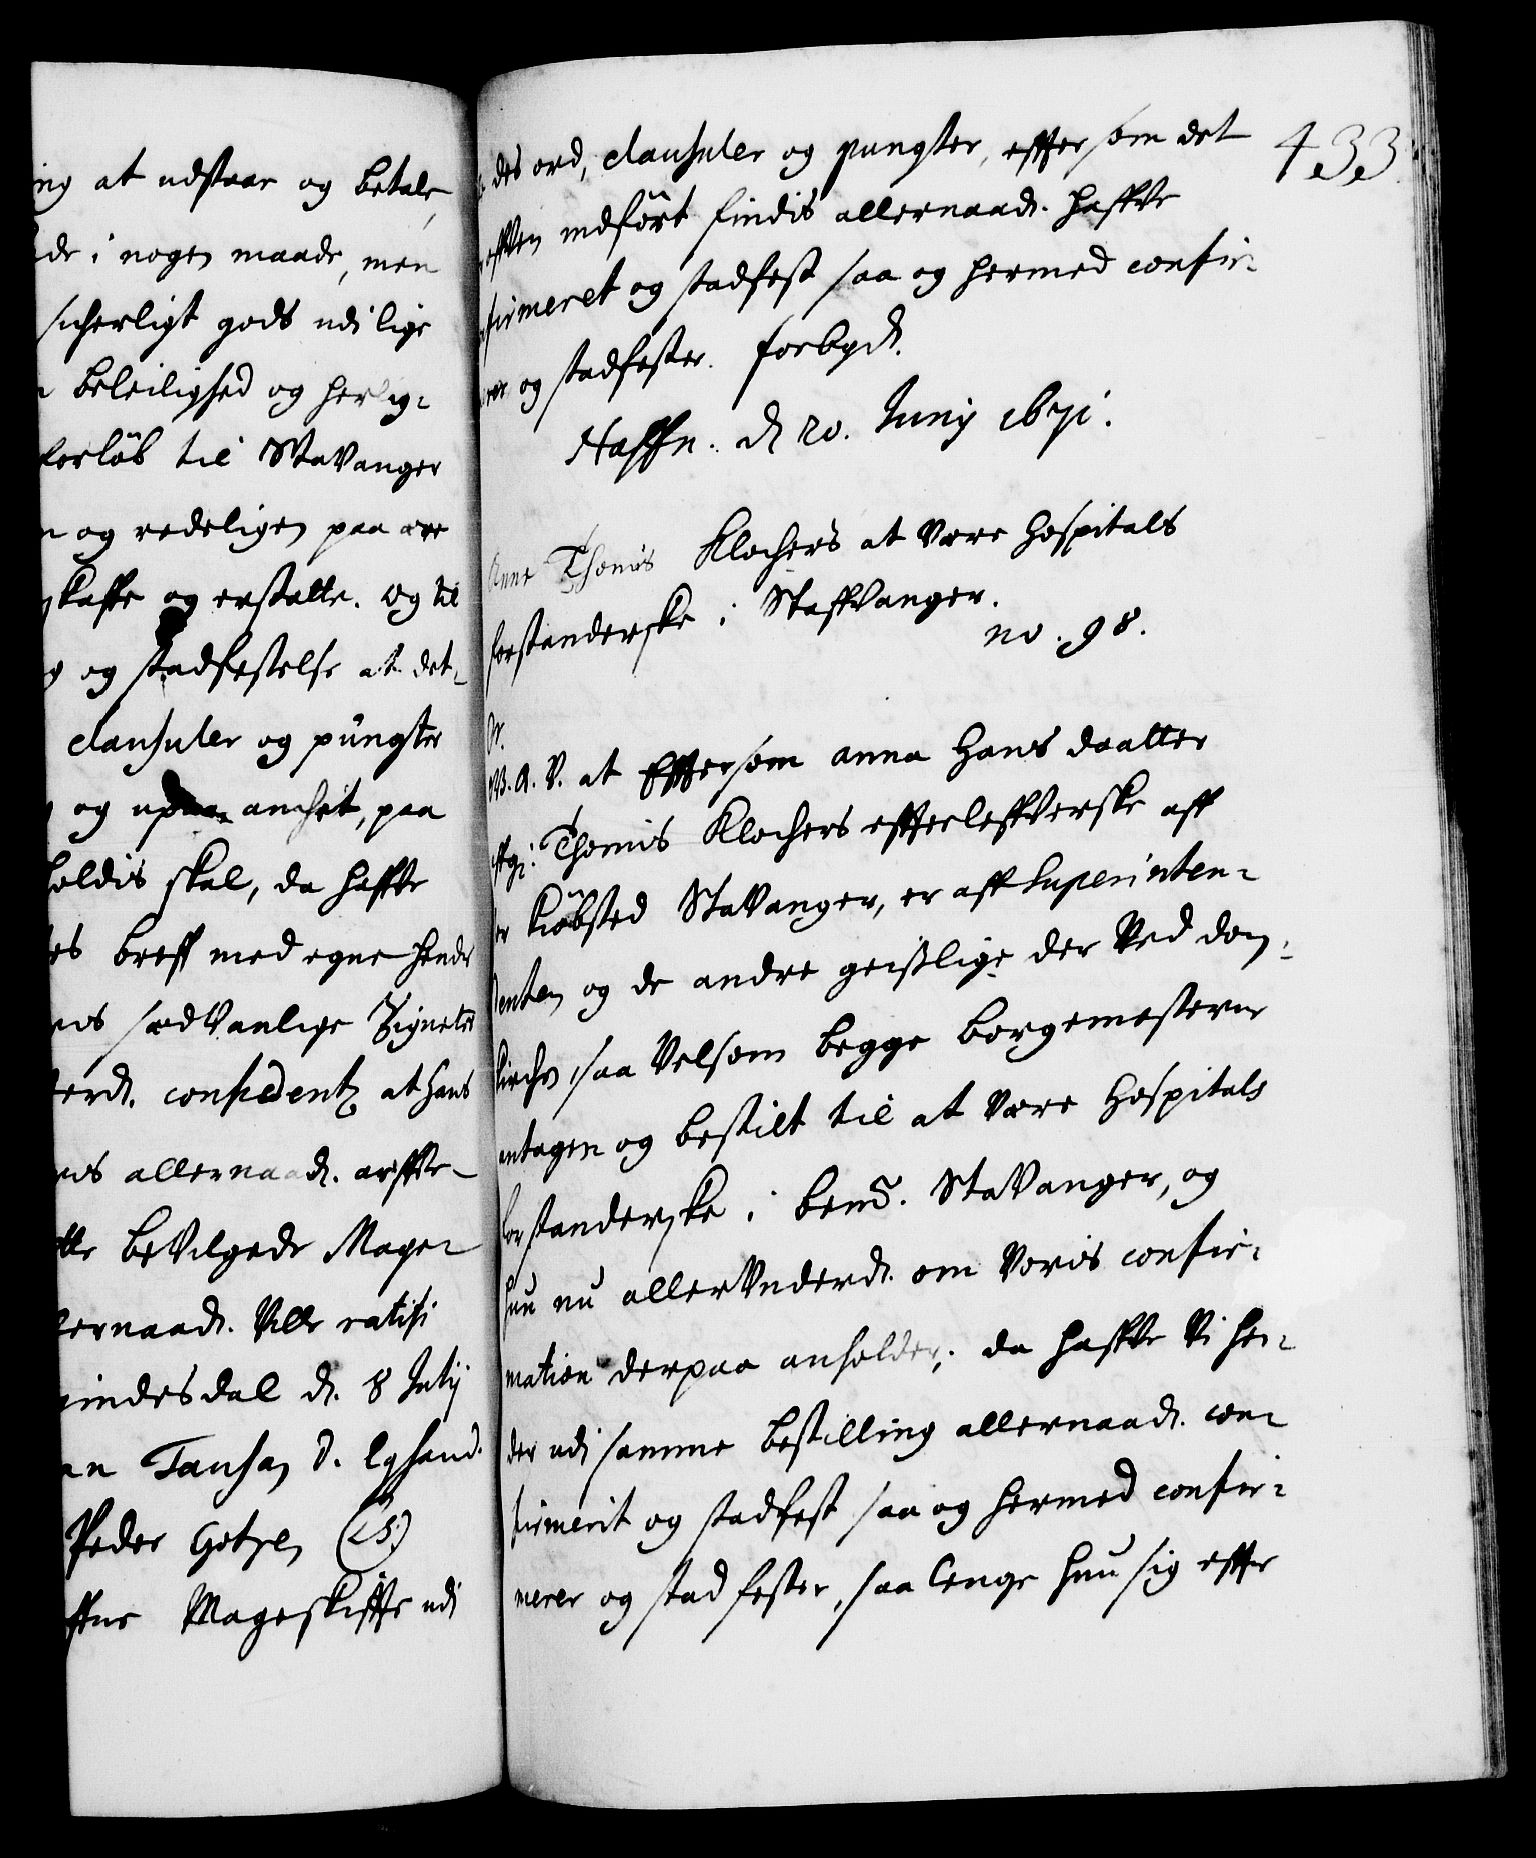 ing at udstaar og betale,
de i nogen maade, men
sicherligt gods udi lige
beleilighed og herlig-
forløb til Stavanger
og redeligen paa ære
skaffe og erstatte. Og til
og stadfestelse at det-
clausuler og pungter
og u anchet, paa
holdis skal, da haffve
breff med egne hender
sædvanlige Zigneter
confidentz at Hans
allernaad. arffve-
bevilgede Mage-
lernaad. Ville ratifi
vindesdal d. 8 Julij
Tausan D. Eghand.
Peder Gotzen (LS.)
Mageskiffte udi
433.
des ord, clausuler og pungter, effter som det
indført findis allernaad. haffve
firmeret og stadfest saa og hermed confir-
og stadfester. Forbyd.
Haffn. d 20. Junij 1671.
Anne Thomis Klochers at være Hospitals
forstanderske i Staffvanger.
no. 98.
G. A. V. at Efftersom Anna Hans daatter
Thomis Klochers effterleffverske aff
Kiøbsted Stavanger, er aff Superinten-
denten og de andre geistlige der ved dom-
kirchen, saa velsom begge borgemestere
antagen og bestilt til at være Hospitals
forstanderske i bemd. Stavanger, og
hun nu allerunderd. om Voris confir-
mation derpaa anholder; da haffve Vi hen-
der udi samme bestilling allernaad. con-
firmerit og stadfest saa og hermed confir-
merer og stadfester, saa lenge hun sig effter